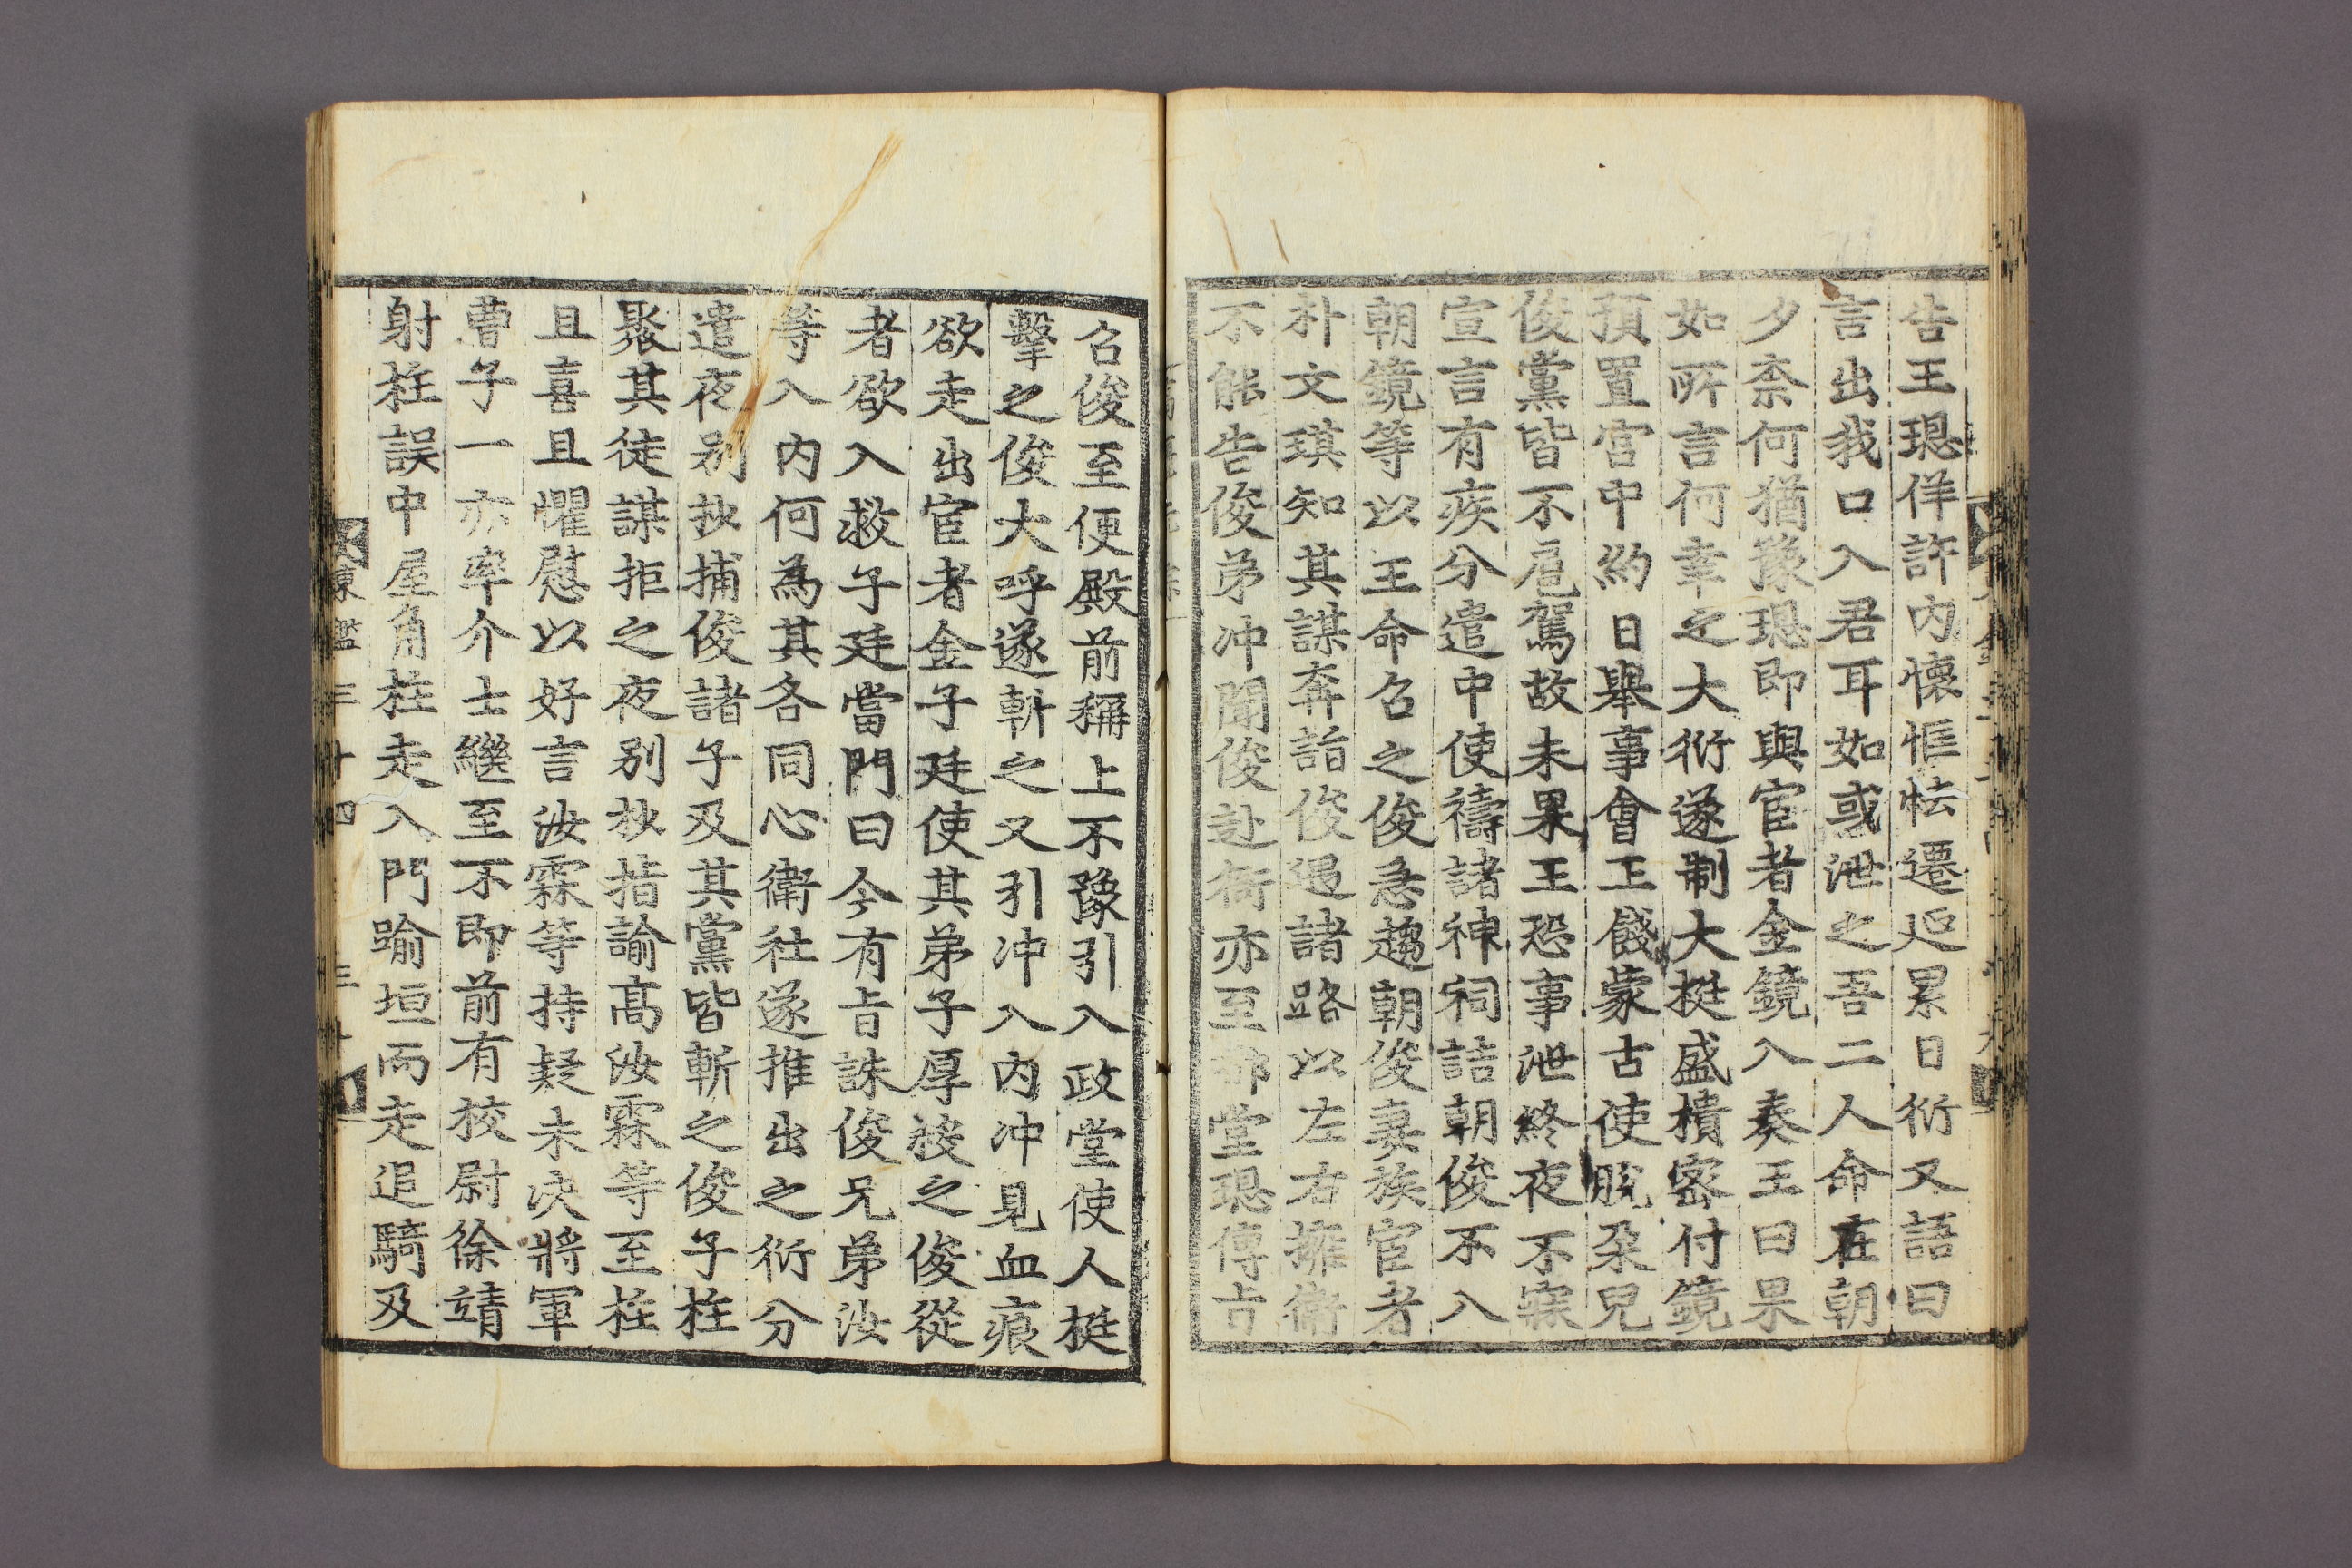 告王璁佯許內懷恇怯遷延累日衍又語曰
言出我口入君耳如或泄之吾二人命在朝
夕柰何猶豫璁即與宦者金鏡入奏王曰果
如所言何幸之大衍遂制大梃盛樻密付鏡
預置宮中約日舉事會王餞蒙古使脫朶兒
俊黨皆不扈駕故未果王恐事泄終夜不寐
宣言有疾分遣中使禱諸神祠詰朝俊不入
朝鏡等以王命召之俊急趨朝俊妻族宦者
朴文琪知其謀奔詣俊遏諸路以左右擁衛
不能告俊弟冲聞俊赴衙亦至都堂璁傳旨
召俊至便殿前稱上不豫引入政堂使人梃
擊之俊大呼遂斬之又引冲入內冲見血痕
欲走出宦者金子廷使其弟子厚殺之俊從
者欲入救子廷當門曰今有旨誅俊兄弟汝
等入內何為其各同心衛社遂推出之衍分
遣夜别抄捕俊諸子及其黨皆斬之俊子柱
聚其徒謀拒之夜别抄指諭高汝霖等至柱
且喜且懼慰以好言汝霖等持疑未决將軍
曹子一亦率介士繼至不即前有校尉徐靖
射柱誤中屋角柱走入門踰垣而走追騎及
東鑑三十四